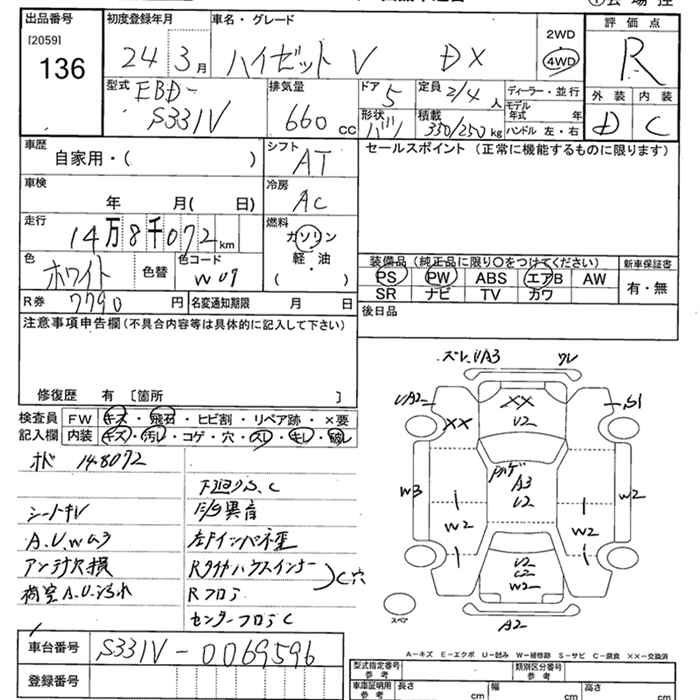 出品番号 初度登録年月 車名・グレード 2WD 評価点
[2059] 136 24 3月 ハイゼット V DX 4WD R
型式 排気量 ドア 定員 ディーラー・並行 外装 内装
EBD-S331V 660cc 5 2/4人 モデル年式 年 D C
形状 バン 積載 350/250kg ハンドル 左・右
車歴 シフト セールスポイント(正常に機能するものに限ります)
自家用・( ) AT
車検 冷房
年 月( 日) AC
走行 燃料
14万8千072km ガソリン
軽・油
( )
色 色コード
ホワイト 色替 W09
装備品(純正品に限り○をつけてください) 新車保証書
PS PW ABS エアB AW 有・無
SR ナビ TV カワ
R券 7790円 名変通知期限 月 日
後日品
注意事項申告欄(不具合内容等は具体的に記入して下さい)
修復歴 有 〔箇所 〕
検査員 FW キズ・飛石・ヒビ割・リペア跡・×要
記入欄 内装 キズ・汚レ・コゲ・穴・スレ・キレ・破レ
148072
下廻りS.C
シートキV 異音
A.U.W
アンテナ欠損
Rフロア C穴
センターフロアC
ズレ UA3 ワレ
UA2 XX XX U2 S1
A3
U2
W3 W2 W2 W2
U2
C2
W2
スペア
A2
A-キズ E-エクボ U-凹み W-補修跡 S-サビ C-腐食 ××-交換済
車台番号 S331V-0069596
登録番号
型式指定番号 参考 類別区分番号 参考
車庫証明用 参考 長さ cm 幅 cm 高さ cm